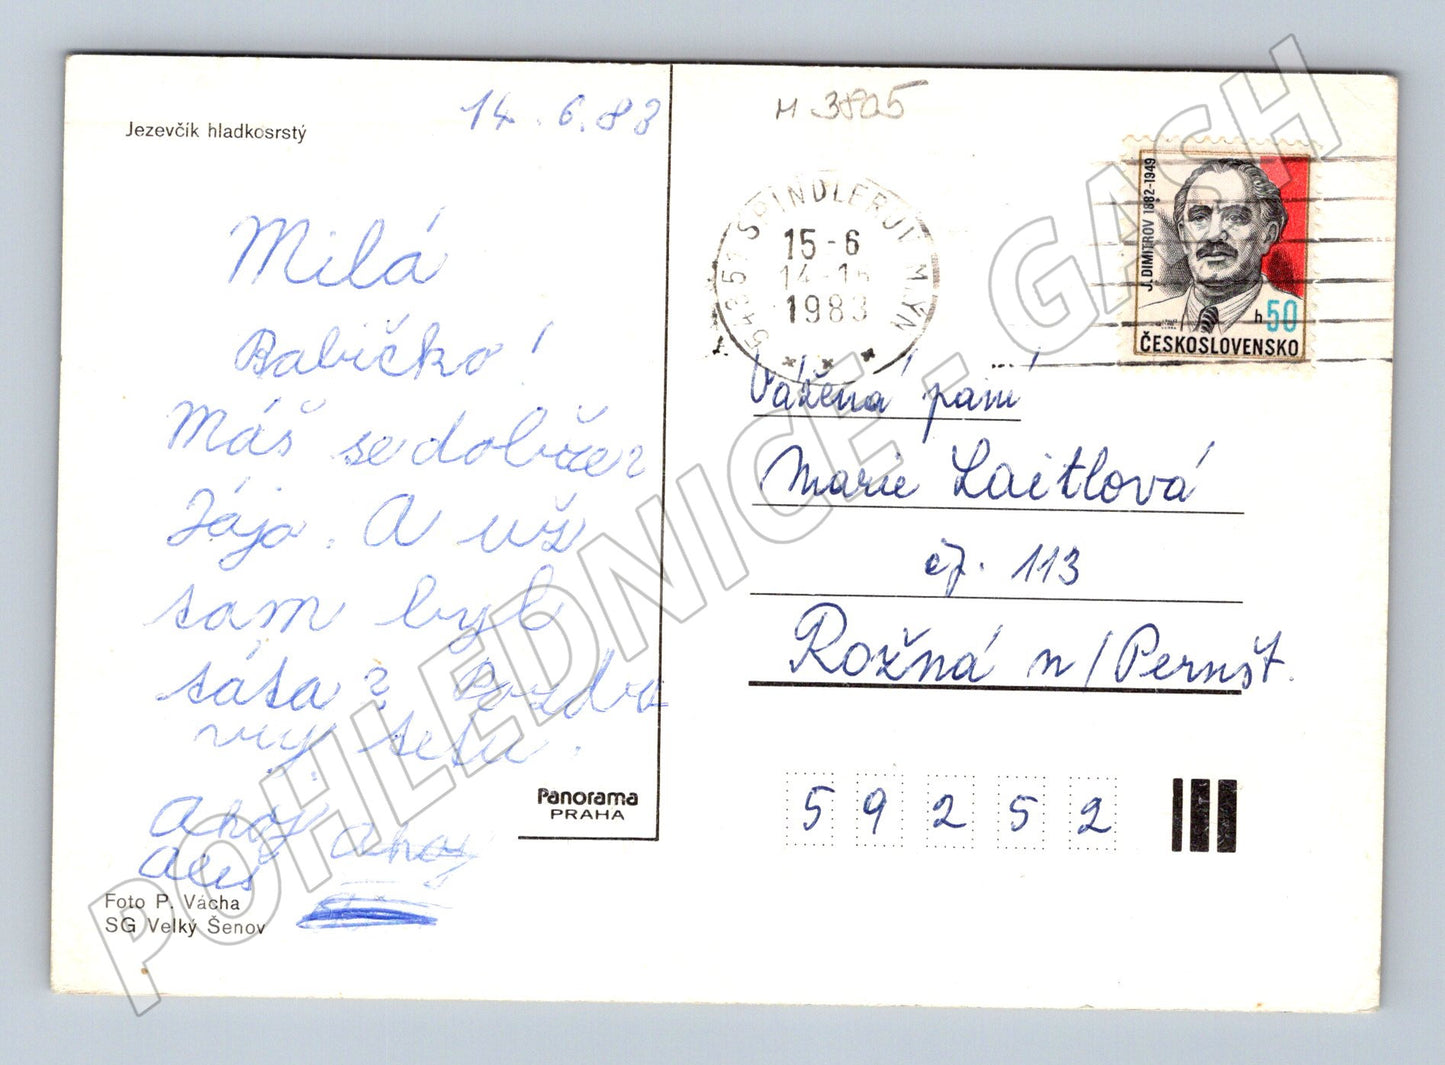 Jezevčík hladkosrstý
14. 6. 83
Milá
Babičko!
Máš se dobře?
Jája. A už
tam byl
táta? Pozdra
vuj tetu.
Ahoj Ahoj
Aleš
Panorama
PRAHA
Foto P. Vácha
SG Velký Šenov
M 3805
543 51 ŠPINDLERŮV MLÝN
15-6
1983
J. DIMITROV 1882-1949
h 50
ČESKOSLOVENSKO
Vážená paní
Marie Laitlová
čp. 113
Rožná n/Pernšt.
59252
POHLEDNICE - GASH